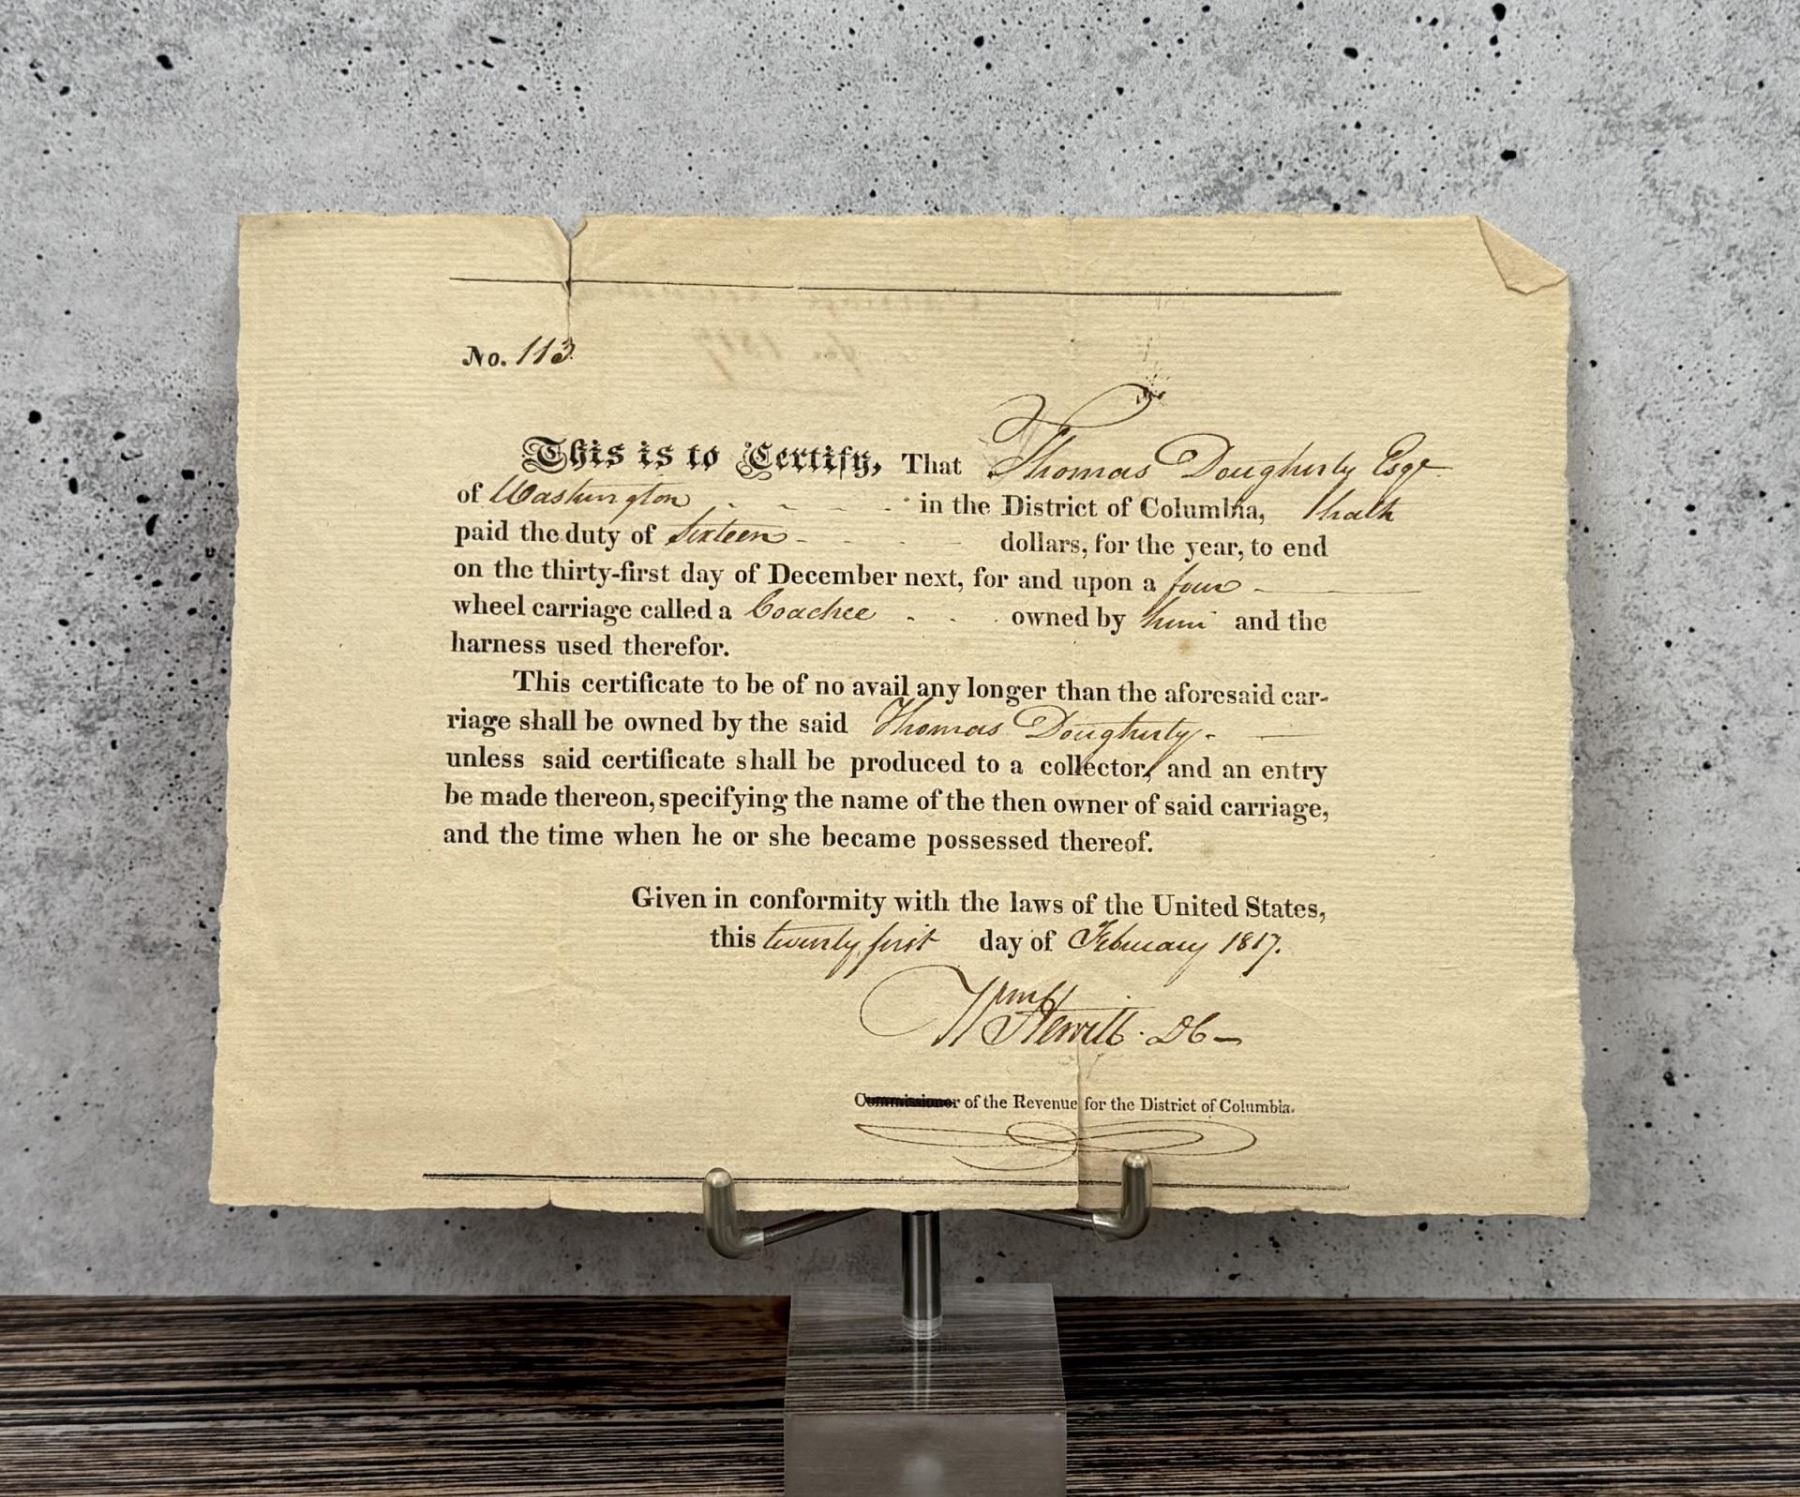 No. 113
This is to Certify, That Thomas Dougherty Esqr
of Washington in the District of Columbia, hath
paid the duty of Sixteen dollars, for the year, to end
on the thirty-first day of December next, for and upon a four
wheel carriage called a Coachee owned by him and the
harness used therefor.
This certificate to be of no avail any longer than the aforesaid car-
riage shall be owned by the said Thomas Dougherty
unless said certificate shall be produced to a collector, and an entry
be made thereon, specifying the name of the then owner of said carriage,
and the time when he or she became possessed thereof.
Given in conformity with the laws of the United States,
this twenty first day of February 1817.
Wm Hewitt DC
of the Revenue for the District of Columbia.